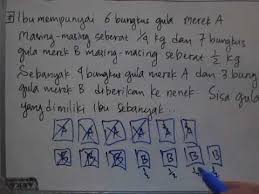 Ibu mempunyai 6 bungkus gula merek A
Masing-masing seberat 1/4 kg dan 7 bungkus
gula merek B masing-macing seberat 1/2 kg
Sebanyak 4 bungkus gula merek A dan 3 bung
gula merek B diberikan ke nenek. Sisa gula
yang dimiliki Ibu sebanyak...
B B B B
1/2 1/2 1/2 1/2